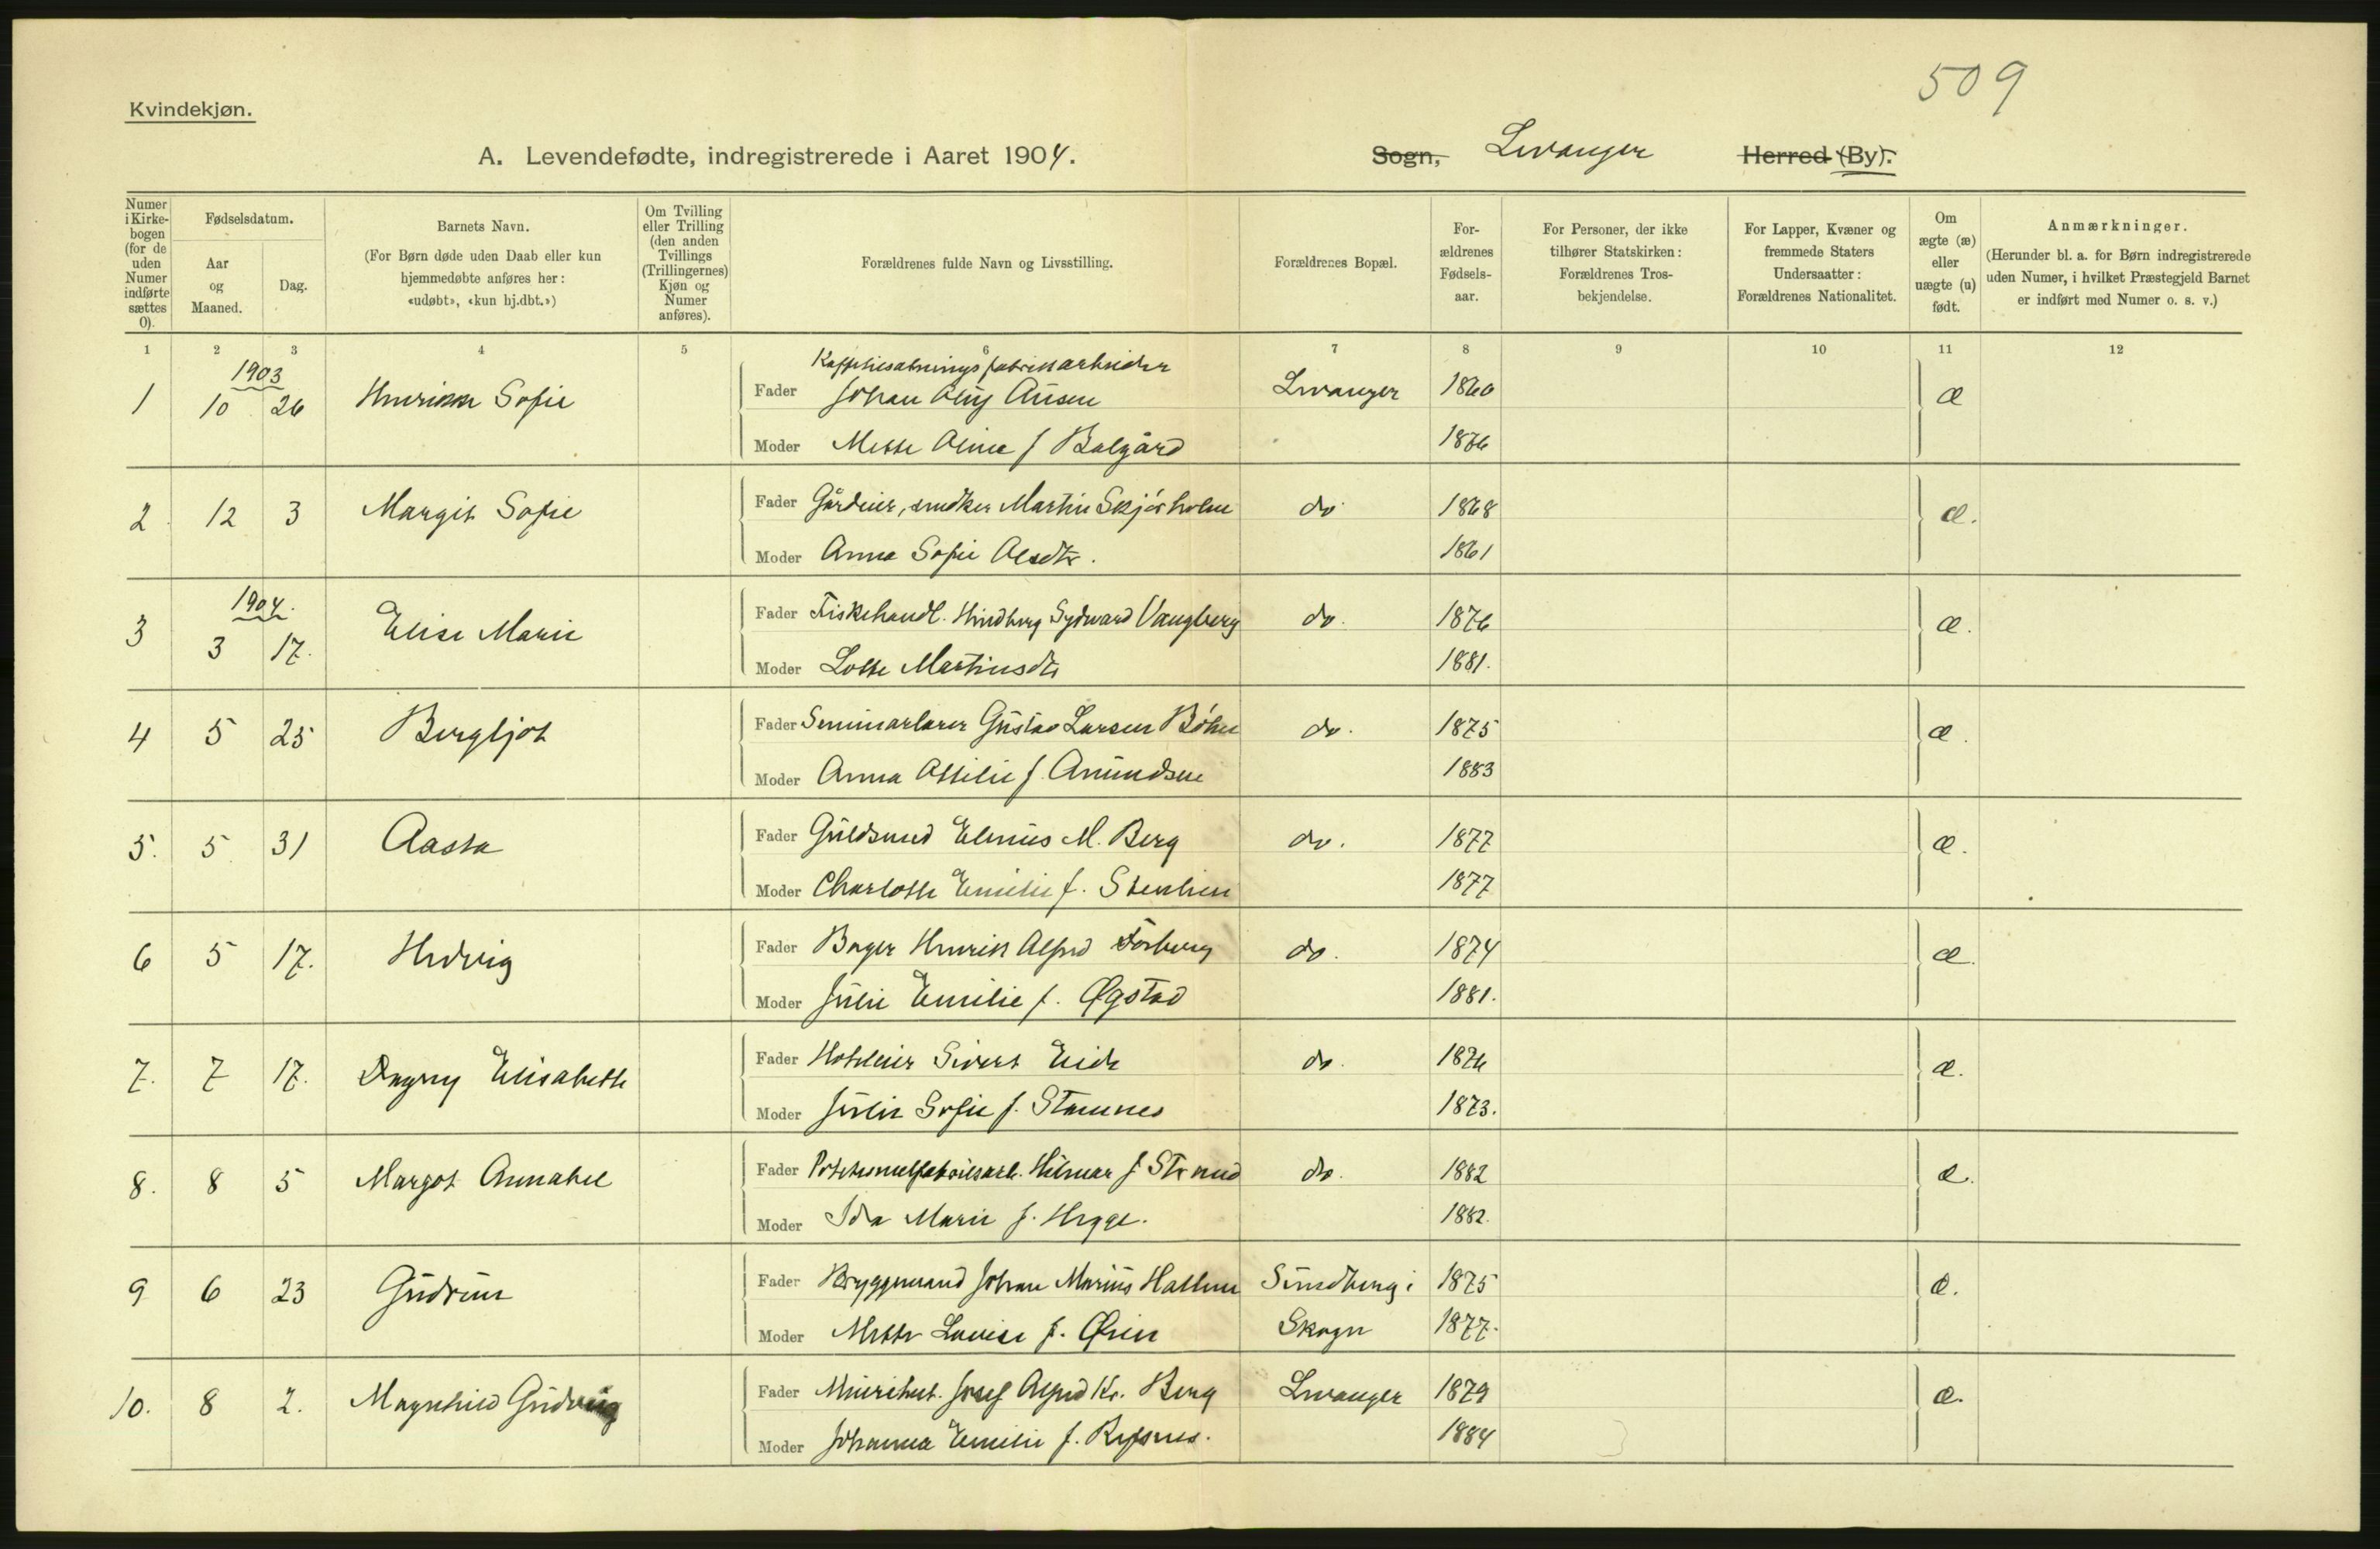 509
Kvindekjøn.
A. Levendefødte, indregistrerede i Aaret 1904. Sogn, Levanger Herred (By).
Numer i Kirkebogen (for de uden Numer indførte sættes 0).
Fødselsdatum.
Aar og Maaned.
Dag.
Barnets Navn.
(For Børn døde uden Daab eller kun hjemmedøbte anføres her: «udøbt», «kun hj.dbt.»)
Om Tvilling eller Trilling (den anden Tvillings (Trillingernes) Kjøn og Numer anføres).
Forældrenes fulde Navn og Livsstilling.
Forældrenes Bopæl.
Forældrenes Fødselsaar.
For Personer, der ikke tilhører Statskirken: Forældrenes Trosbekjendelse.
For Lapper, Kvæner og fremmede Staters Undersaatter: Forældrenes Nationalitet.
Om ægte (æ) eller uægte (u) født.
Anmærkninger.
(Herunder bl. a. for Børn indregistrerede uden Numer, i hvilket Præstegjeld Barnet er indført med Numer o. s. v.)
1 2 3 4 5 6 7 8 9 10 11 12
1903
1 10 26 Henrikke Sofie Fader Johan Levanger 1860 æ
Moder Mette f Balgård 1866
2 12 3 Margit Sofie Fader Gårdeier, snedker Martin Skjesholm do 1868 æ.
Moder Anna Sofie Olsdtr. 1861
1904.
3 3 17. Elise Marie Fader Fiskehandl. Hindberg Sydward Vangberg do. 1876 æ.
Moder Lotte Martinsdtr 1881.
4 5 25 Bergljot Fader Seminarlærer Gustav Larsen Böhn do. 1875 æ.
Moder Anna Ottilie f. Amundsen 1883
5. 5 31 Aasta Fader Guldsmed Elenius M. Berg do. 1877 æ.
Moder Charlotte Emilie f. Stenhien 1877
6 5 17. Hedvig Fader Bager Henrik Alfred Forberg do. 1874 æ.
Moder Julie Emilie f. Øgstad 1881.
7. 7 17. Dagny Elisabeth Fader Hoteleier Sivert Eide do. 1876 æ.
Moder Julie Sofie f. Stamnes 1873.
8. 8 5 Margot Annabel Fader Potetesmelfabriksarb. Hilmar J Strand do. 1882 æ.
Moder Ida Marie f. Hegge. 1882.
9 6 23 Gudrun Fader Bryggemand Johan Marius Hallem Sundberg i 1875 æ.
Moder Mette Lovise f. Øvien Skogn 1877.
10. 8 2. Magnhild Gudveig Fader Josef Alfred Kr. Berg Levanger 1879 æ.
Moder Johanna Emilie f. Refsnes. 1884